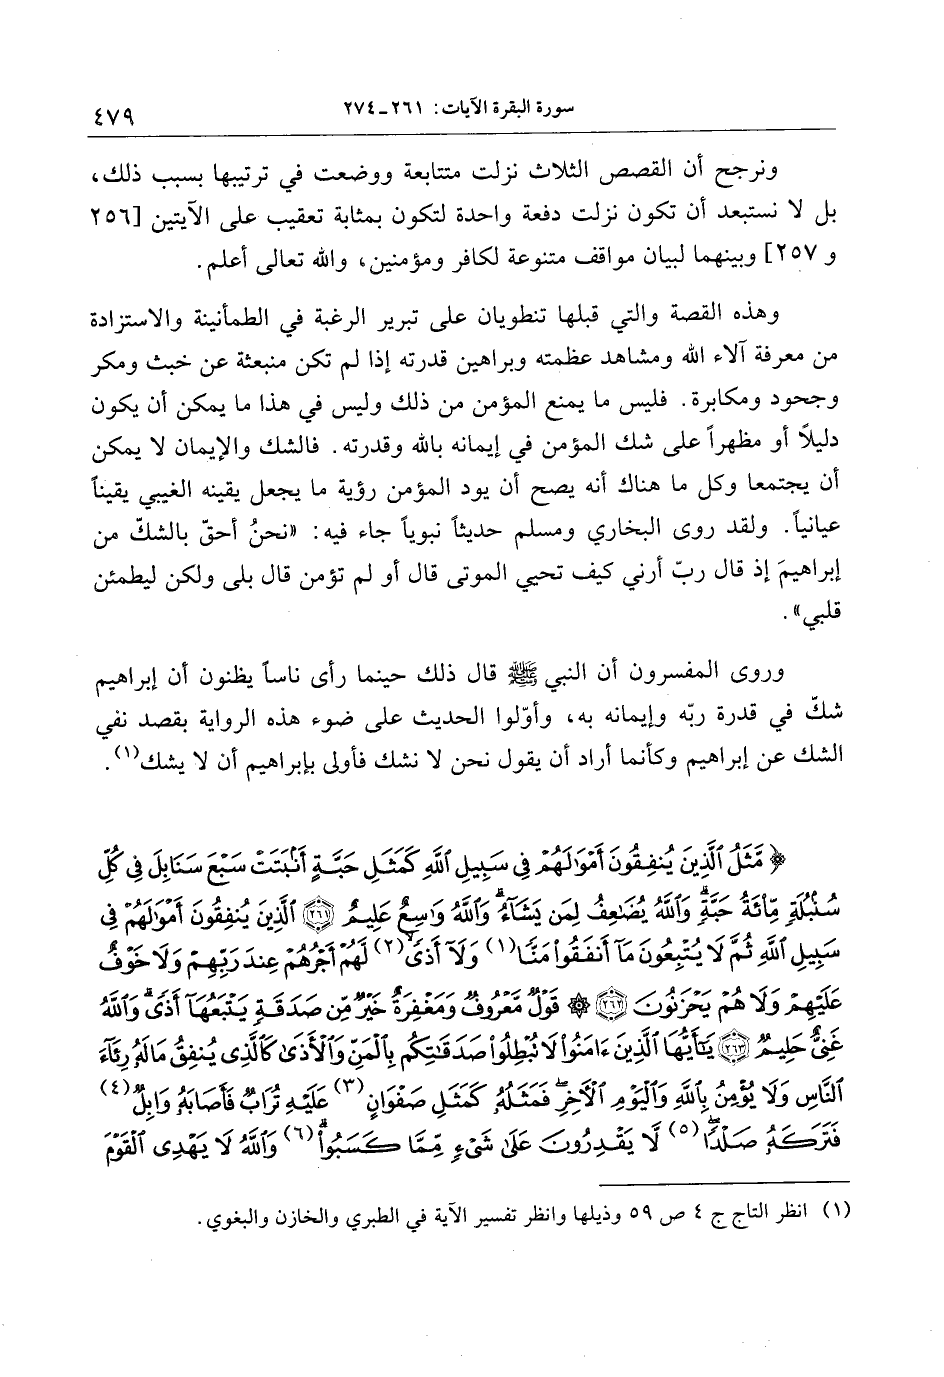 سورة البقرة الآيات: ٢٦١-٢٧٤
٤٧٩
ونرجح أن القصص الثلاث نزلت متتابعة ووضعت في ترتيبها بسبب ذلك،
بل لا نستبعد أن تكون نزلت دفعة واحدة لتكون بمثابة تعقيب على الآيتين [٢٥٦
و ٢٥٧] وبينهما لبيان مواقف متنوعة لكافر ومؤمنين، والله تعالى أعلم.
وهذه القصة والتي قبلها تنطويان على تبرير الرغبة في الطمأنينة والاستزادة
من معرفة آلاء الله ومشاهد عظمته وبراهين قدرته إذا لم تكن منبعثة عن خبث ومكر
وجحود ومكابرة. فليس ما يمنع المؤمن من ذلك وليس في هذا ما يمكن أن يكون
دليلاً أو مظهراً على شك المؤمن في إيمانه بالله وقدرته. فالشك والإيمان لا يمكن
أن يجتمعا وكل ما هناك أنه يصح أن يود المؤمن رؤية ما يجعل يقينه الغيبي يقيناً
عيانياً. ولقد روى البخاري ومسلم حديثاً نبوياً جاء فيه: «نحنُ أحقّ بالشكّ من
إبراهيمَ إذ قال ربّ أرني كيف تحيي الموتى قال أو لم تؤمن قال بلى ولكن ليطمئن
قلبي».
وروى المفسرون أن النبي ﷺ قال ذلك حينما رأى ناساً يظنون أن إبراهيم
شكّ في قدرة ربّه وإيمانه به، وأوّلوا الحديث على ضوء هذه الرواية بقصد نفي
الشك عن إبراهيم وكأنما أراد أن يقول نحن لا نشك فأولى بإبراهيم أن لا يشك(١).
﴿ مَّثَلُ ٱلَّذِينَ يُنفِقُونَ أَمْوَٰلَهُمْ فِى سَبِيلِ ٱللَّهِ كَمَثَلِ حَبَّةٍ أَنۢبَتَتْ سَبْعَ سَنَابِلَ فِى كُلِّ
سُنۢبُلَةٍ مِّا۟ئَةُ حَبَّةٍ ۗ وَٱللَّهُ يُضَٰعِفُ لِمَن يَشَآءُ ۗ وَٱللَّهُ وَٰسِعٌ عَلِيمٌ ۝٢٦١ ٱلَّذِينَ يُنفِقُونَ أَمْوَٰلَهُمْ فِى
سَبِيلِ ٱللَّهِ ثُمَّ لَا يُتْبِعُونَ مَآ أَنفَقُوا۟ مَنًّا(١) وَلَآ أَذًى ۙ(٢) لَّهُمْ أَجْرُهُمْ عِندَ رَبِّهِمْ وَلَا خَوْفٌ
عَلَيْهِمْ وَلَا هُمْ يَحْزَنُونَ ۝٢٦٢ ۞ قَوْلٌ مَّعْرُوفٌ وَمَغْفِرَةٌ خَيْرٌ مِّن صَدَقَةٍ يَتْبَعُهَآ أَذًى ۗ وَٱللَّهُ
غَنِىٌّ حَلِيمٌ ۝٢٦٣ يَٰٓأَيُّهَا ٱلَّذِينَ ءَامَنُوا۟ لَا تُبْطِلُوا۟ صَدَقَٰتِكُم بِٱلْمَنِّ وَٱلْأَذَىٰ كَٱلَّذِى يُنفِقُ مَالَهُۥ رِئَآءَ
ٱلنَّاسِ وَلَا يُؤْمِنُ بِٱللَّهِ وَٱلْيَوْمِ ٱلْءَاخِرِ ۖ فَمَثَلُهُۥ كَمَثَلِ صَفْوَانٍ(٣) عَلَيْهِ تُرَابٌ فَأَصَابَهُۥ وَابِلٌ(٤)
فَتَرَكَهُۥ صَلْدًا ۖ(٥) لَّا يَقْدِرُونَ عَلَىٰ شَىْءٍ مِّمَّا كَسَبُوا۟ ۗ(٦) وَٱللَّهُ لَا يَهْدِى ٱلْقَوْمَ
(١) انظر التاج ج ٤ ص ٥٩ وذيلها وانظر تفسير الآية في الطبري والخازن والبغوي.